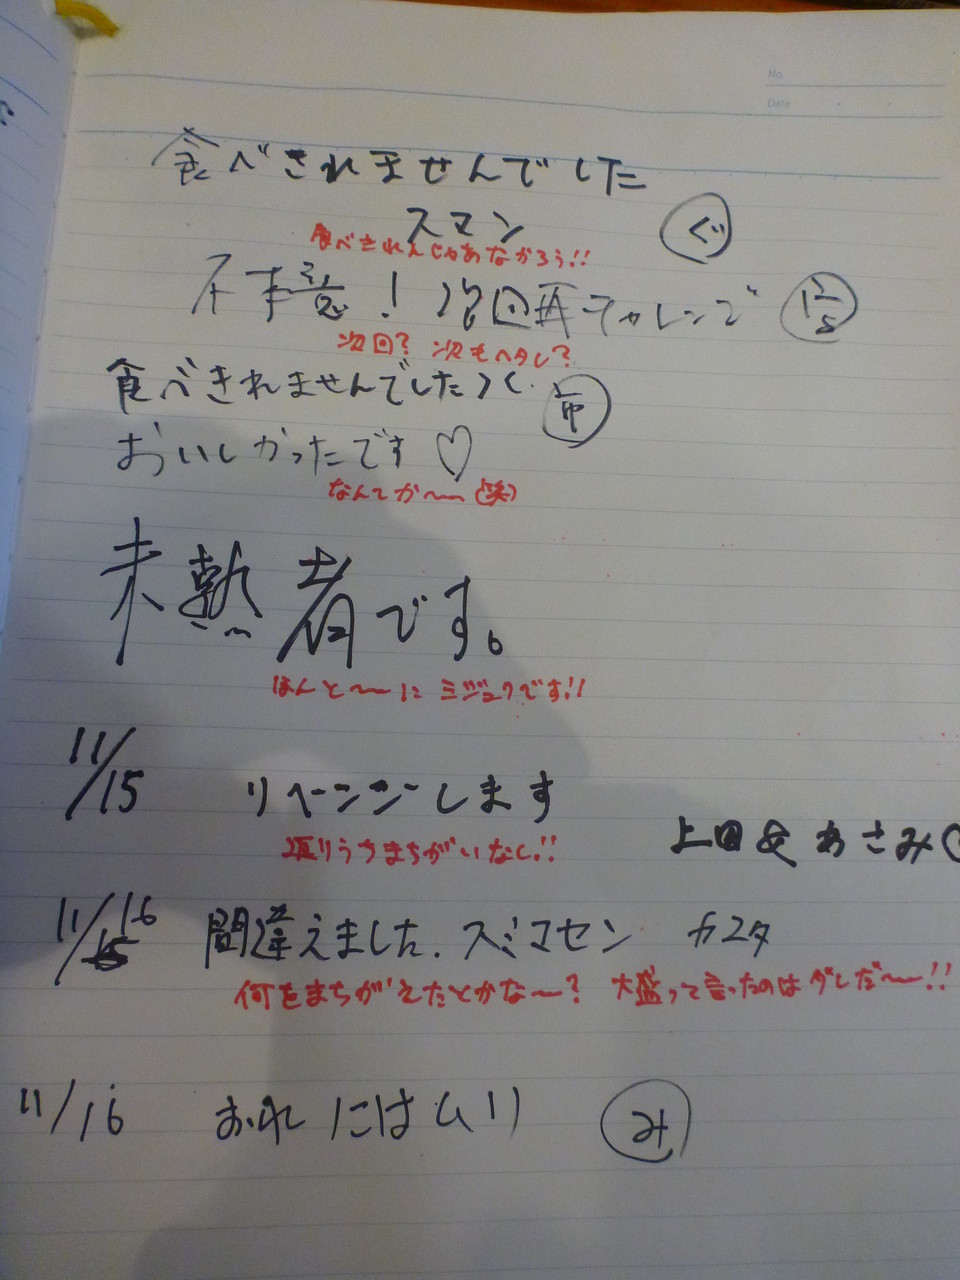 No.
Date
食べきれませんでした
スマン ぐ
食べきれんじゃあなかろう!!
不本意! 次回再チャレンジ
次回? 次もヘタレ?
食べきれませんでした
おいしかったです♡
なんでか〜〜(笑)
未熟者です。
ほんと〜〜にミジュクです!!
11/15 リベンジします
返りうちまちがいなし!!
上田& あさみ
11/16 間違えました. スミマセン カユタ
何をまちがえたとかな〜? 大盛って言ったのはダレだ〜!!
11/16 おれにはムリ み